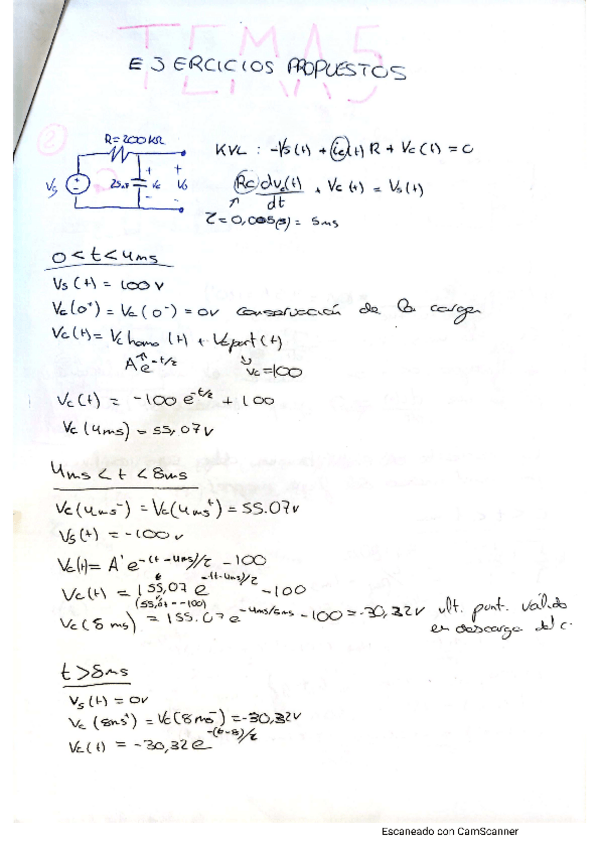 TEMA 5
EJERCICIOS PROPUESTOS
2
R=200kΩ
KVL : -Vs(t) + ic(t) R + Vc(t) = 0
Vs
25nF
+ Vc -
+ Vo -
RC dvc(t)/dt + Vc(t) = Vs(t)
τ = 0,005(s) = 5ms
0<t<4ms
Vs(t) = 100V
Vc(0⁺) = Vc(0⁻) = 0V conservación de la carga
Vc(t) = Vc homo(t) + Vc part(t)
A e^-t/τ
Vc=100
Vc(t) = -100 e^-t/τ + 100
Vc(4ms) = 55,07V
4ms < t < 8ms
Vc(4ms⁻) = Vc(4ms⁺) = 55.07V
Vs(t) = -100V
Vc(t) = A' e^-(t-4ms)/τ - 100
Vc(t) = 155,07 e^-(t-4ms)/τ - 100
(55,07 - -100)
Vc(8ms) = 155.07 e^-4ms/5ms - 100 = -30,32V ult. punt. válido
en descarga del c.
t > 8ms
Vs(t) = 0V
Vc(8ms⁺) = Vc(8ms⁻) = -30,32V
Vc(t) = -30,32 e^-(t-8)/τ
Escaneado con CamScanner